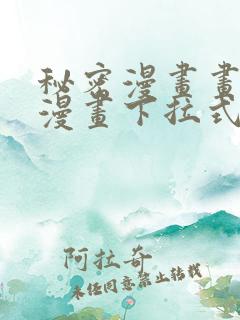 秘密漫畫畫
漫畫下拉式
阿拉奇
未经同意禁止转载